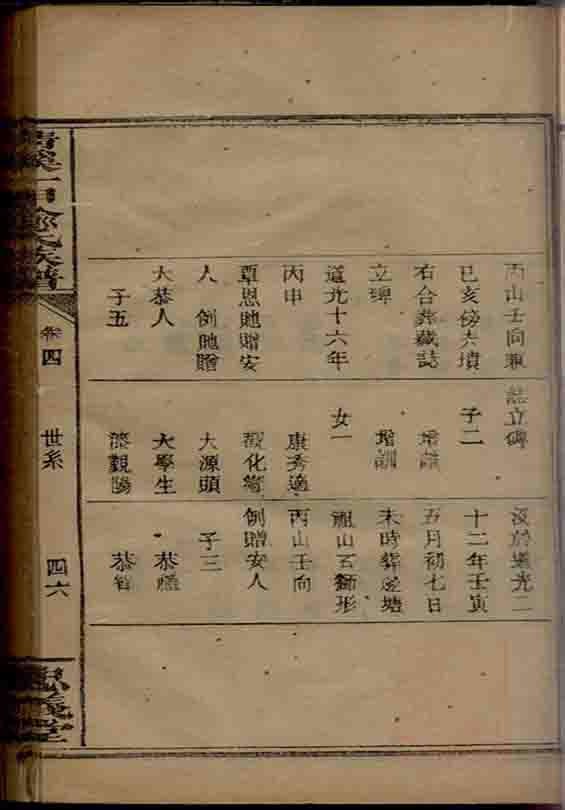 丙山壬向兼
巳亥傍夫墳
右合葬藏誌
立碑
道光十六年
丙申
覃恩貤贈安
人 例貤贈
大恭人
子五
誌立碑
子二
增
增訓
女一
康秀適
化
大源頭
大學生
漆觀陽
沒於道光二
十二年壬寅
五月初七日
未時葬塘
山石獅形
丙山壬向
例贈安人
子三
恭
恭
族譜
卷四
世系
四六
義堂